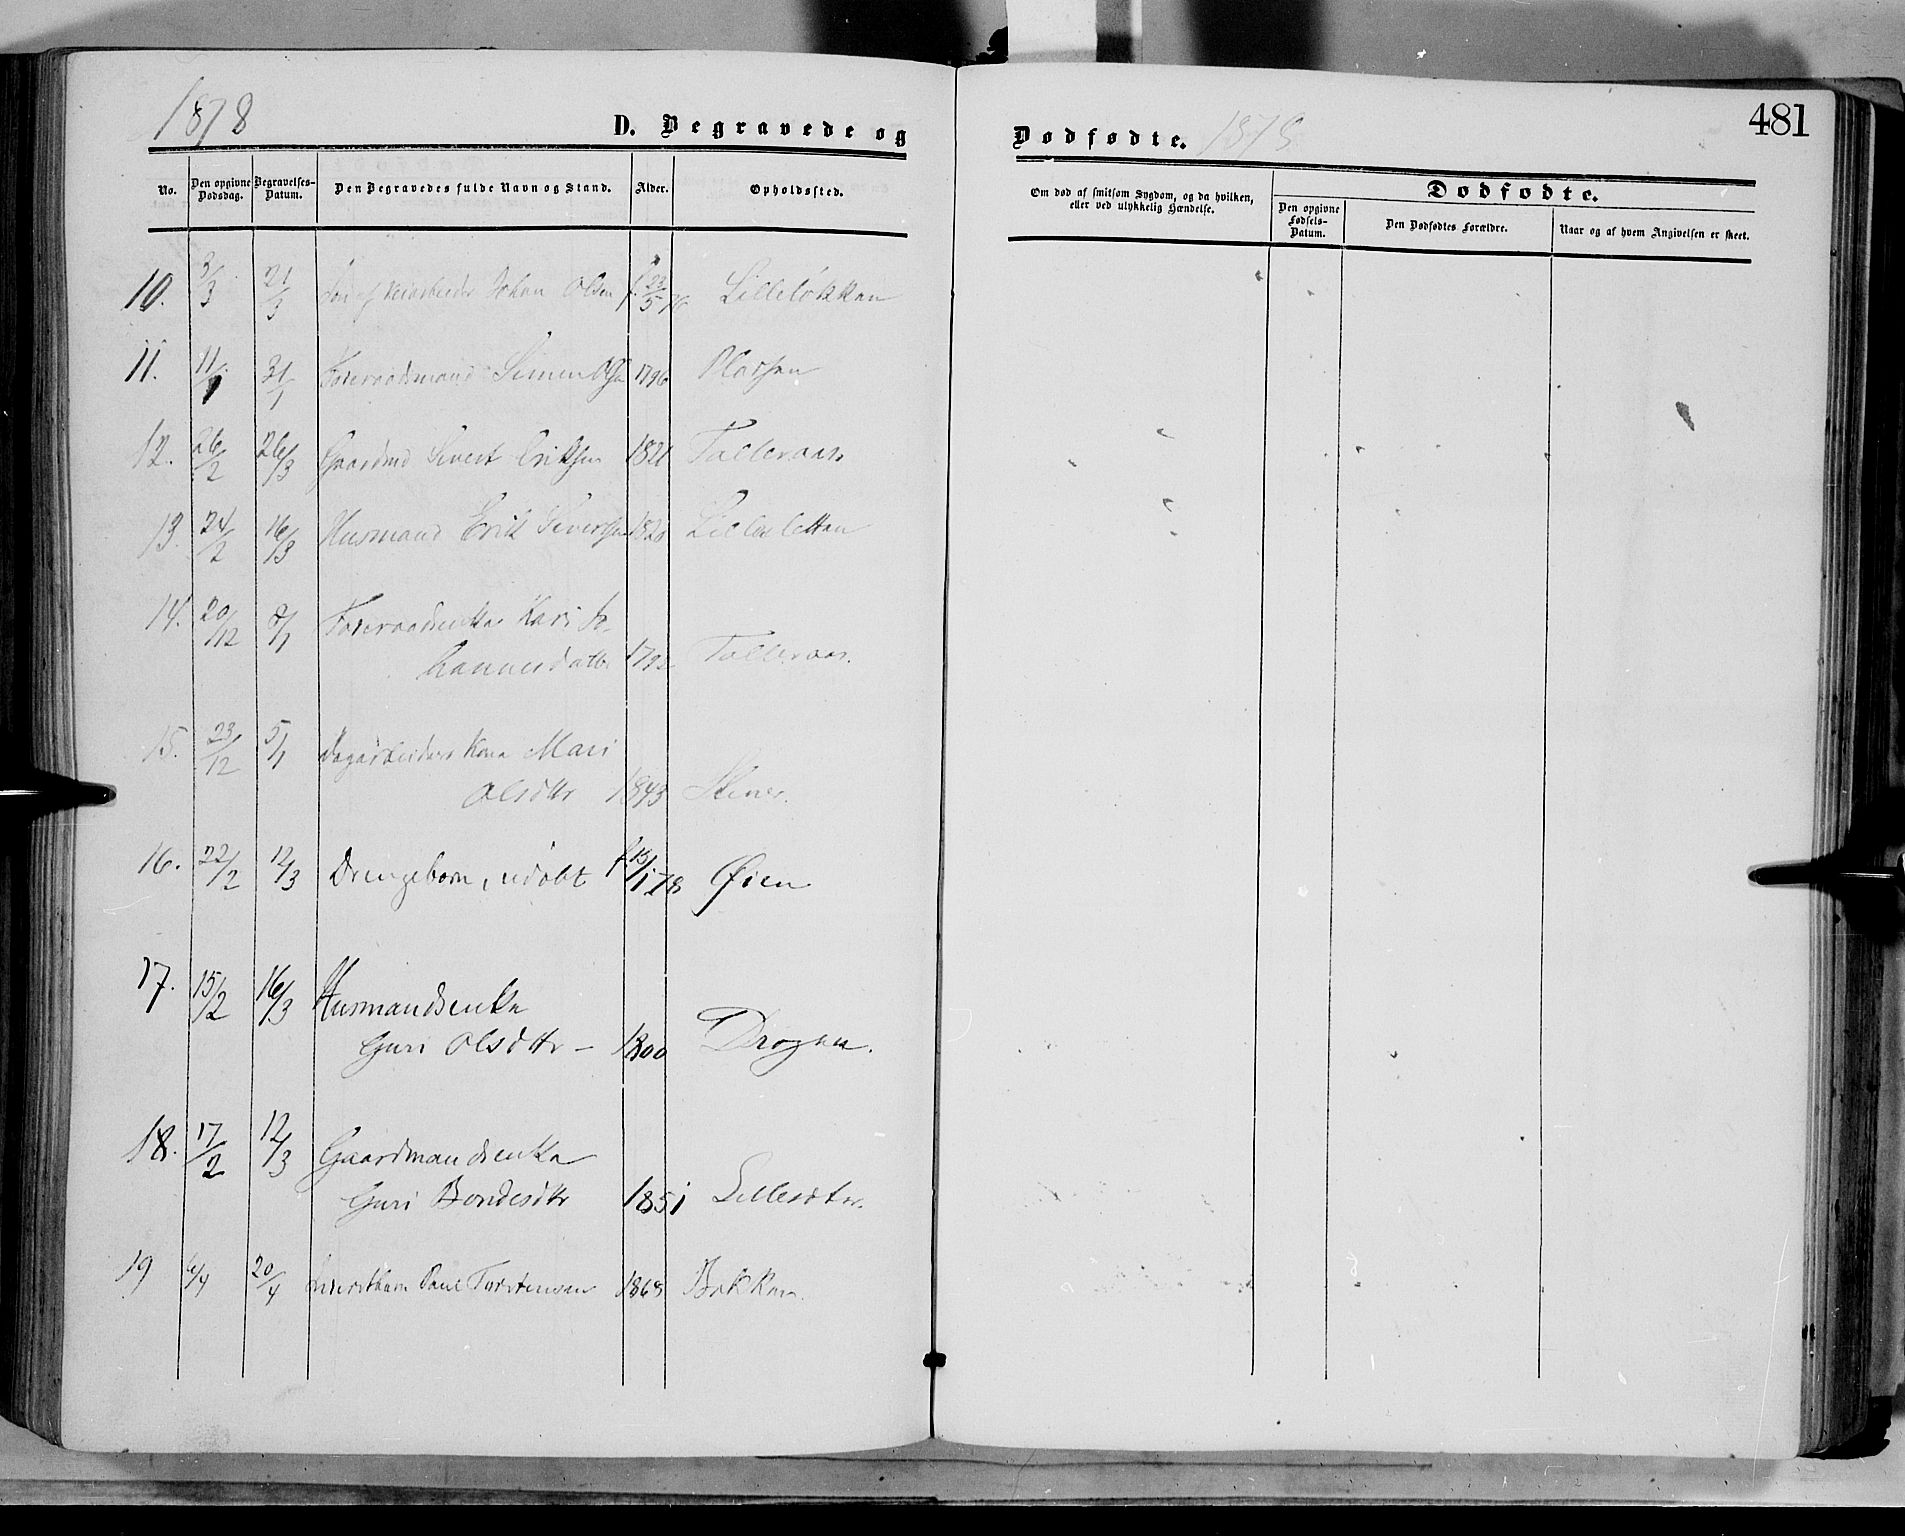 1878
D. Begravede og
Dødfødte. 1878
481
No.
Den opgivne Dødsdag.
Begravelses-Datum.
Den Begravedes fulde Navn og Stand.
Alder.
Opholdssted.
Om død af smitsom Sygdom, og da hvilken, eller ved ulykkelig Hændelse.
Dødfødte.
Den opgivne Fødsels-Datum.
Den Dødfødtes Forældre.
Naar og af hvem Angivelsen er skeet.
10. 3/3 21/3 Johan Olsen f. 23/5 76 Lilleløkken
11. 11/1 31/1 Foderaadsmand Simen Olsen 1796 Plassen
12. 26/2 26/3 Gaardmd Sivert Eriksen 1821 Talleraas
13. 24/2 16/3 Husmand Erik Sivertsen 1820 Lillesletten
14. 20/12 8/1 Foderaadsenke Kari Jo-
hannesdatter 1792 Talleraas.
15. 23/12 5/1 Dagarbeiders Kone Mari
Olsdtr 1843
16. 22/2 12/3 Drengebarn, udøbt f. 15/1 78 Øien
17. 15/2 16/3 Husmandsenke
Guri Olsdtr – 1800 Drogen.
18. 17/2 12/3 Gaardmandsenke
Guri Bondesdtr 1851
19 6/4 20/4 Paul Torstensen 1868 Bakken